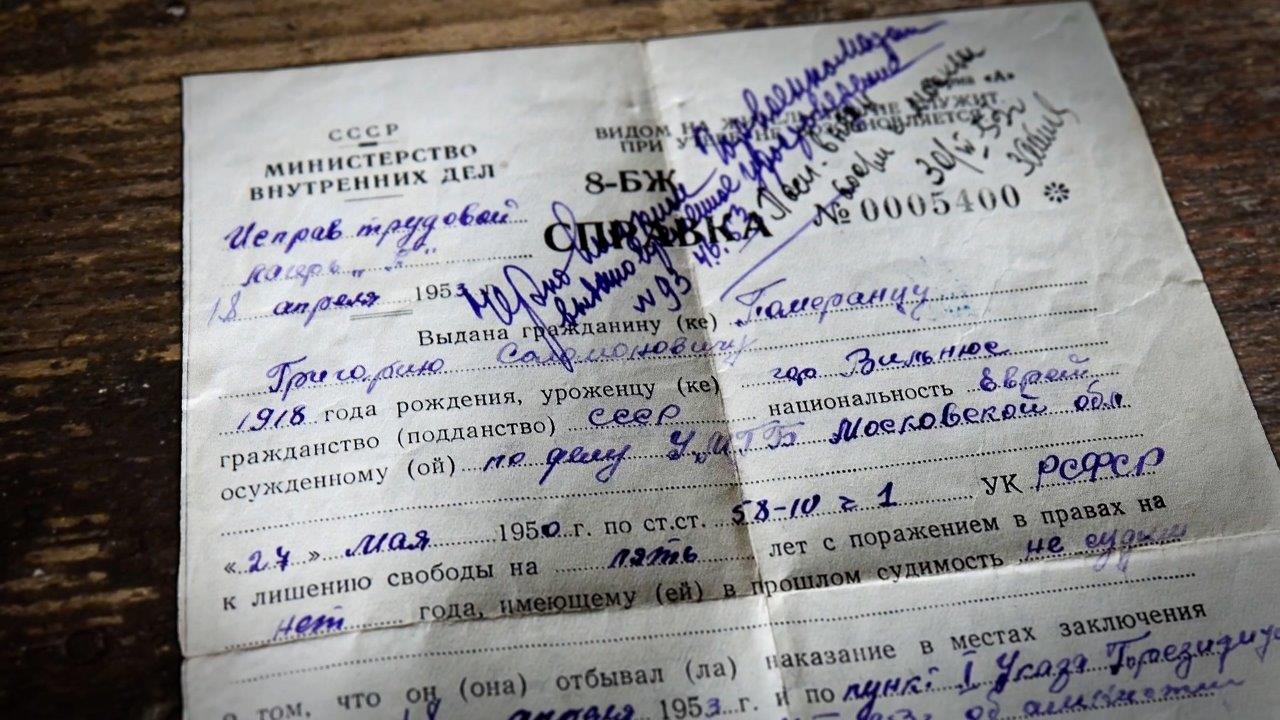 СССР
МИНИСТЕРСТВО
ВНУТРЕННИХ ДЕЛ
Исправ. трудовой
лагерь
18 апреля 1953 г.
ВИДОМ НА
СЛУЖИТ.
ПРИ
8-БЖ
«А»
СПРАВКА
№ 0005400
выдано
удостоверение
№ 93 4.6.53
30/IV-53г
Выдана гражданину (ке) Померанцу
Григорию Соломоновичу
1918 года рождения, уроженцу (ке) гор Вильнюс
гражданство (подданство) СССР национальность Еврей
осужденному (ой) по делу УМГБ Московской обл
«27» мая 1950 г. по ст.ст. 58-10 ч 1 УК РСФСР
к лишению свободы на пять лет с поражением в правах на
нет года, имеющему (ей) в прошлом судимость не судим
о том, что он (она) отбывал (ла) наказание в местах заключения
18 апреля 1953 г. и по пункт I Указа Президиу
об амнистии